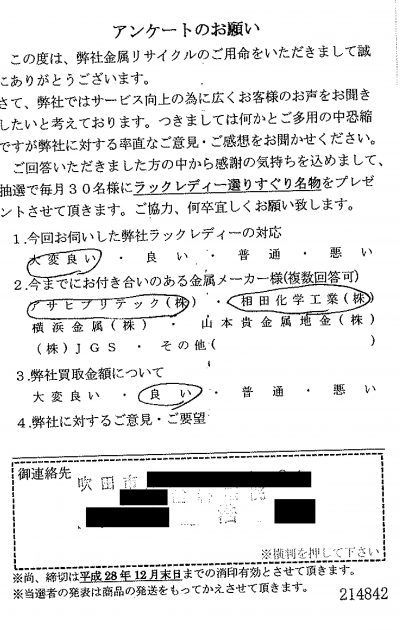 アンケートのお願い
この度は、弊社金属リサイクルのご用命をいただきまして誠
にありがとうございます。
さて、弊社ではサービス向上の為に広くお客様のお声をお聞き
したいと考えております。つきましては何かとご多用の中恐縮
ですが弊社に対する率直なご意見・ご感想をお聞かせください。
ご回答いただきました方の中から感謝の気持ちを込めまして、
抽選で毎月30名様にラックレディー選りすぐり名物をプレゼ
ントさせて頂きます。ご協力、何卒宜しくお願い致します。
1.今回お伺いした弊社ラックレディーの対応
大変良い ・ 良い ・ 普通 ・ 悪い
2.今までにお付き合いのある金属メーカー様(複数回答可)
アサヒプリテック(株) ・ 相田化学工業(株)
横浜金属(株) ・ 山本貴金属地金(株)
(株)JGS ・ その他( )
3.弊社買取金額について
大変良い ・ 良い ・ 普通 ・ 悪い
4.弊社に対するご意見・ご要望
御連絡先
吹田市
※横判を押して下さい
※尚、締切は平成28年12月末日までの消印有効とさせて頂きます。
※当選者の発表は商品の発送をもってかえさせて頂きます。
214842